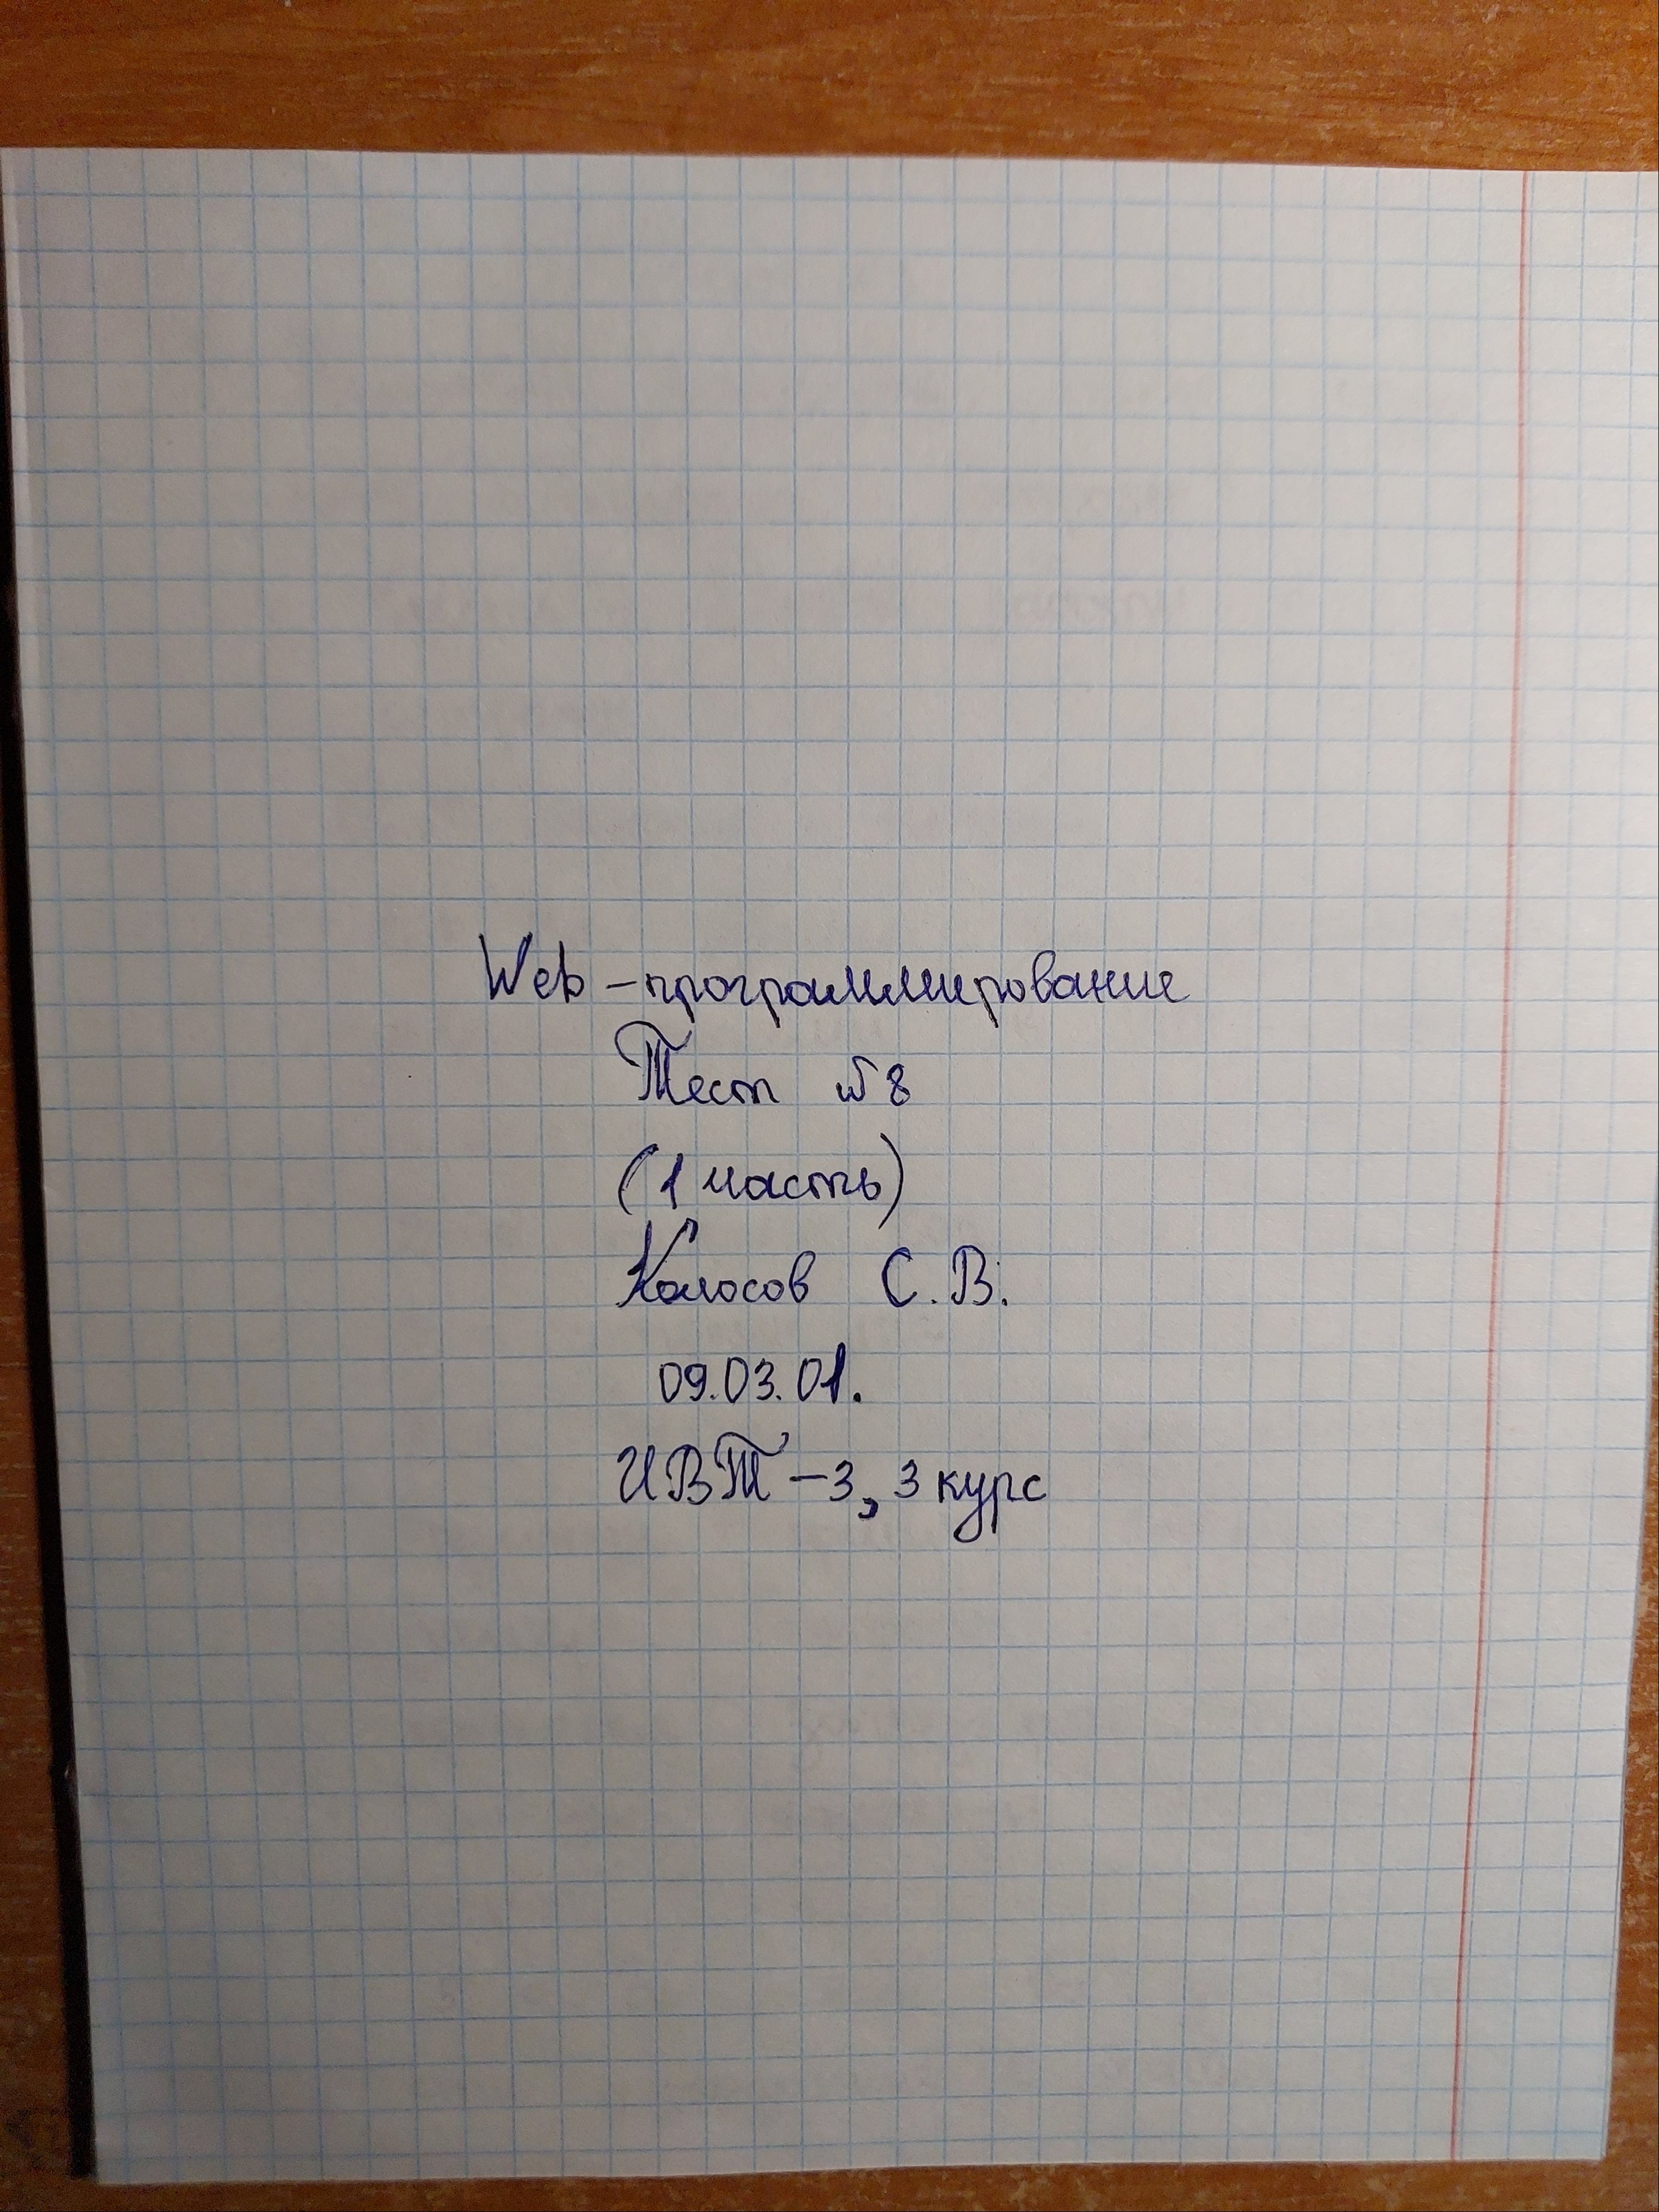 Web-программирование
Тест №8
(1 часть)
Колосов С.В.
09.03.01.
ИВТ-3, 3 курс